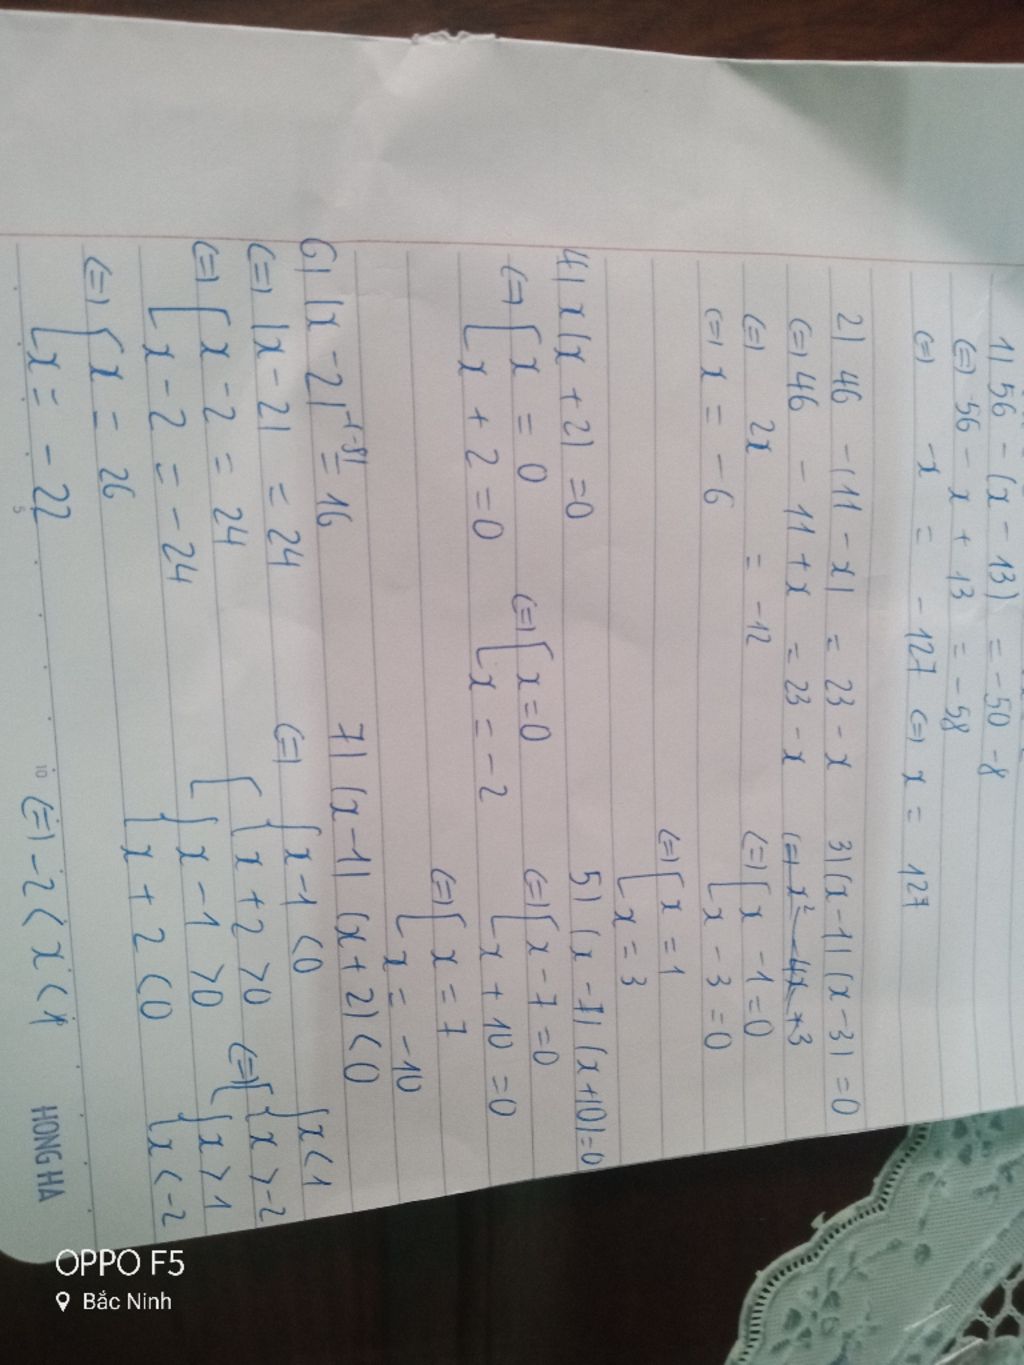 1) 56 - (x - 13) = -50 -8
(=) 56 - x + 13 = -58
(=) -x = -127 (=) x = 127
2) 46 - (11 - x) = 23 - x
(=) 46 - 11 + x = 23 - x
(=) 2x = -12
(=) x = -6
3) (x - 1) (x - 3) = 0
(=) x² - 4x + 3
(=) [ x - 1 = 0
x - 3 = 0
(=) [ x = 1
x = 3
4) x(x + 2) = 0
(=) [ x = 0 (=) [ x = 0
x + 2 = 0 x = -2
5) (x - 7) (x + 10) = 0
(=) [ x - 7 = 0
x + 10 = 0
(=) [ x = 7
x = -10
6) |x - 2| -(-8) = 16
(=) |x - 2| = 24
(=) [ x - 2 = 24
x - 2 = -24
(=) [ x = 26
x = -22
7) (x - 1) (x + 2) < 0
(=) [ { x - 1 < 0
x + 2 > 0
{ x - 1 > 0
x + 2 < 0
(=) [ { x < 1
x > -2
{ x > 1
x < -2
(=) -2 < x < 1
5
10
HONG HA
OPPO F5
Bắc Ninh